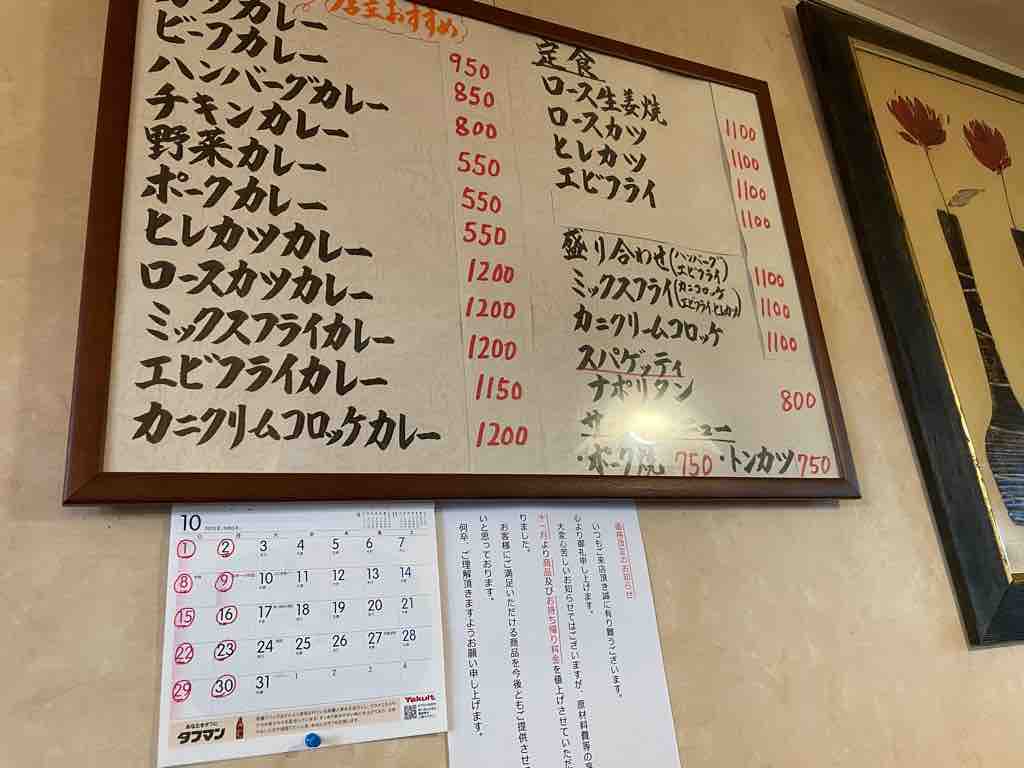 店主おすすめ
カレー 950
ビーフカレー 850
ハンバーグカレー 800
チキンカレー 550
野菜カレー 550
ポークカレー 550
ヒレカツカレー 1200
ロースカツカレー 1200
ミックスフライカレー 1200
エビフライカレー 1150
カニクリームコロッケカレー 1200
定食
ロース生姜焼 1100
ロースカツ 1100
ヒレカツ 1100
エビフライ 1100
盛り合わせ(ハンバーグ エビフライ) 1100
ミックスフライ(カニコロッケ エビフライ ヒレカツ) 1100
カニクリームコロッケ 1100
スパゲッティ
ナポリタン 800
ニュー
・ポーク焼 750 ・トンカツ 750
10
1 2 3 4 5 6 7
8 9 10 11 12 13 14
15 16 17 18 19 20 21
22 23 24 25 26 27 28
29 30 31 1 2 3 4
Yakult
あなたをげんきに
タフマン
価格改定のお知らせ
いつもご来店頂き誠に有り難うございます。
心より御礼申し上げます。
大変心苦しいお知らせではございますが、原材料費等の
十一月より商品及びお持ち帰り料金を値上げさせていただ
りました。
お客様にご満足いただける商品を今後ともご提供させ
いと思っております。
何卒、ご理解頂きますようお願い申し上げます。